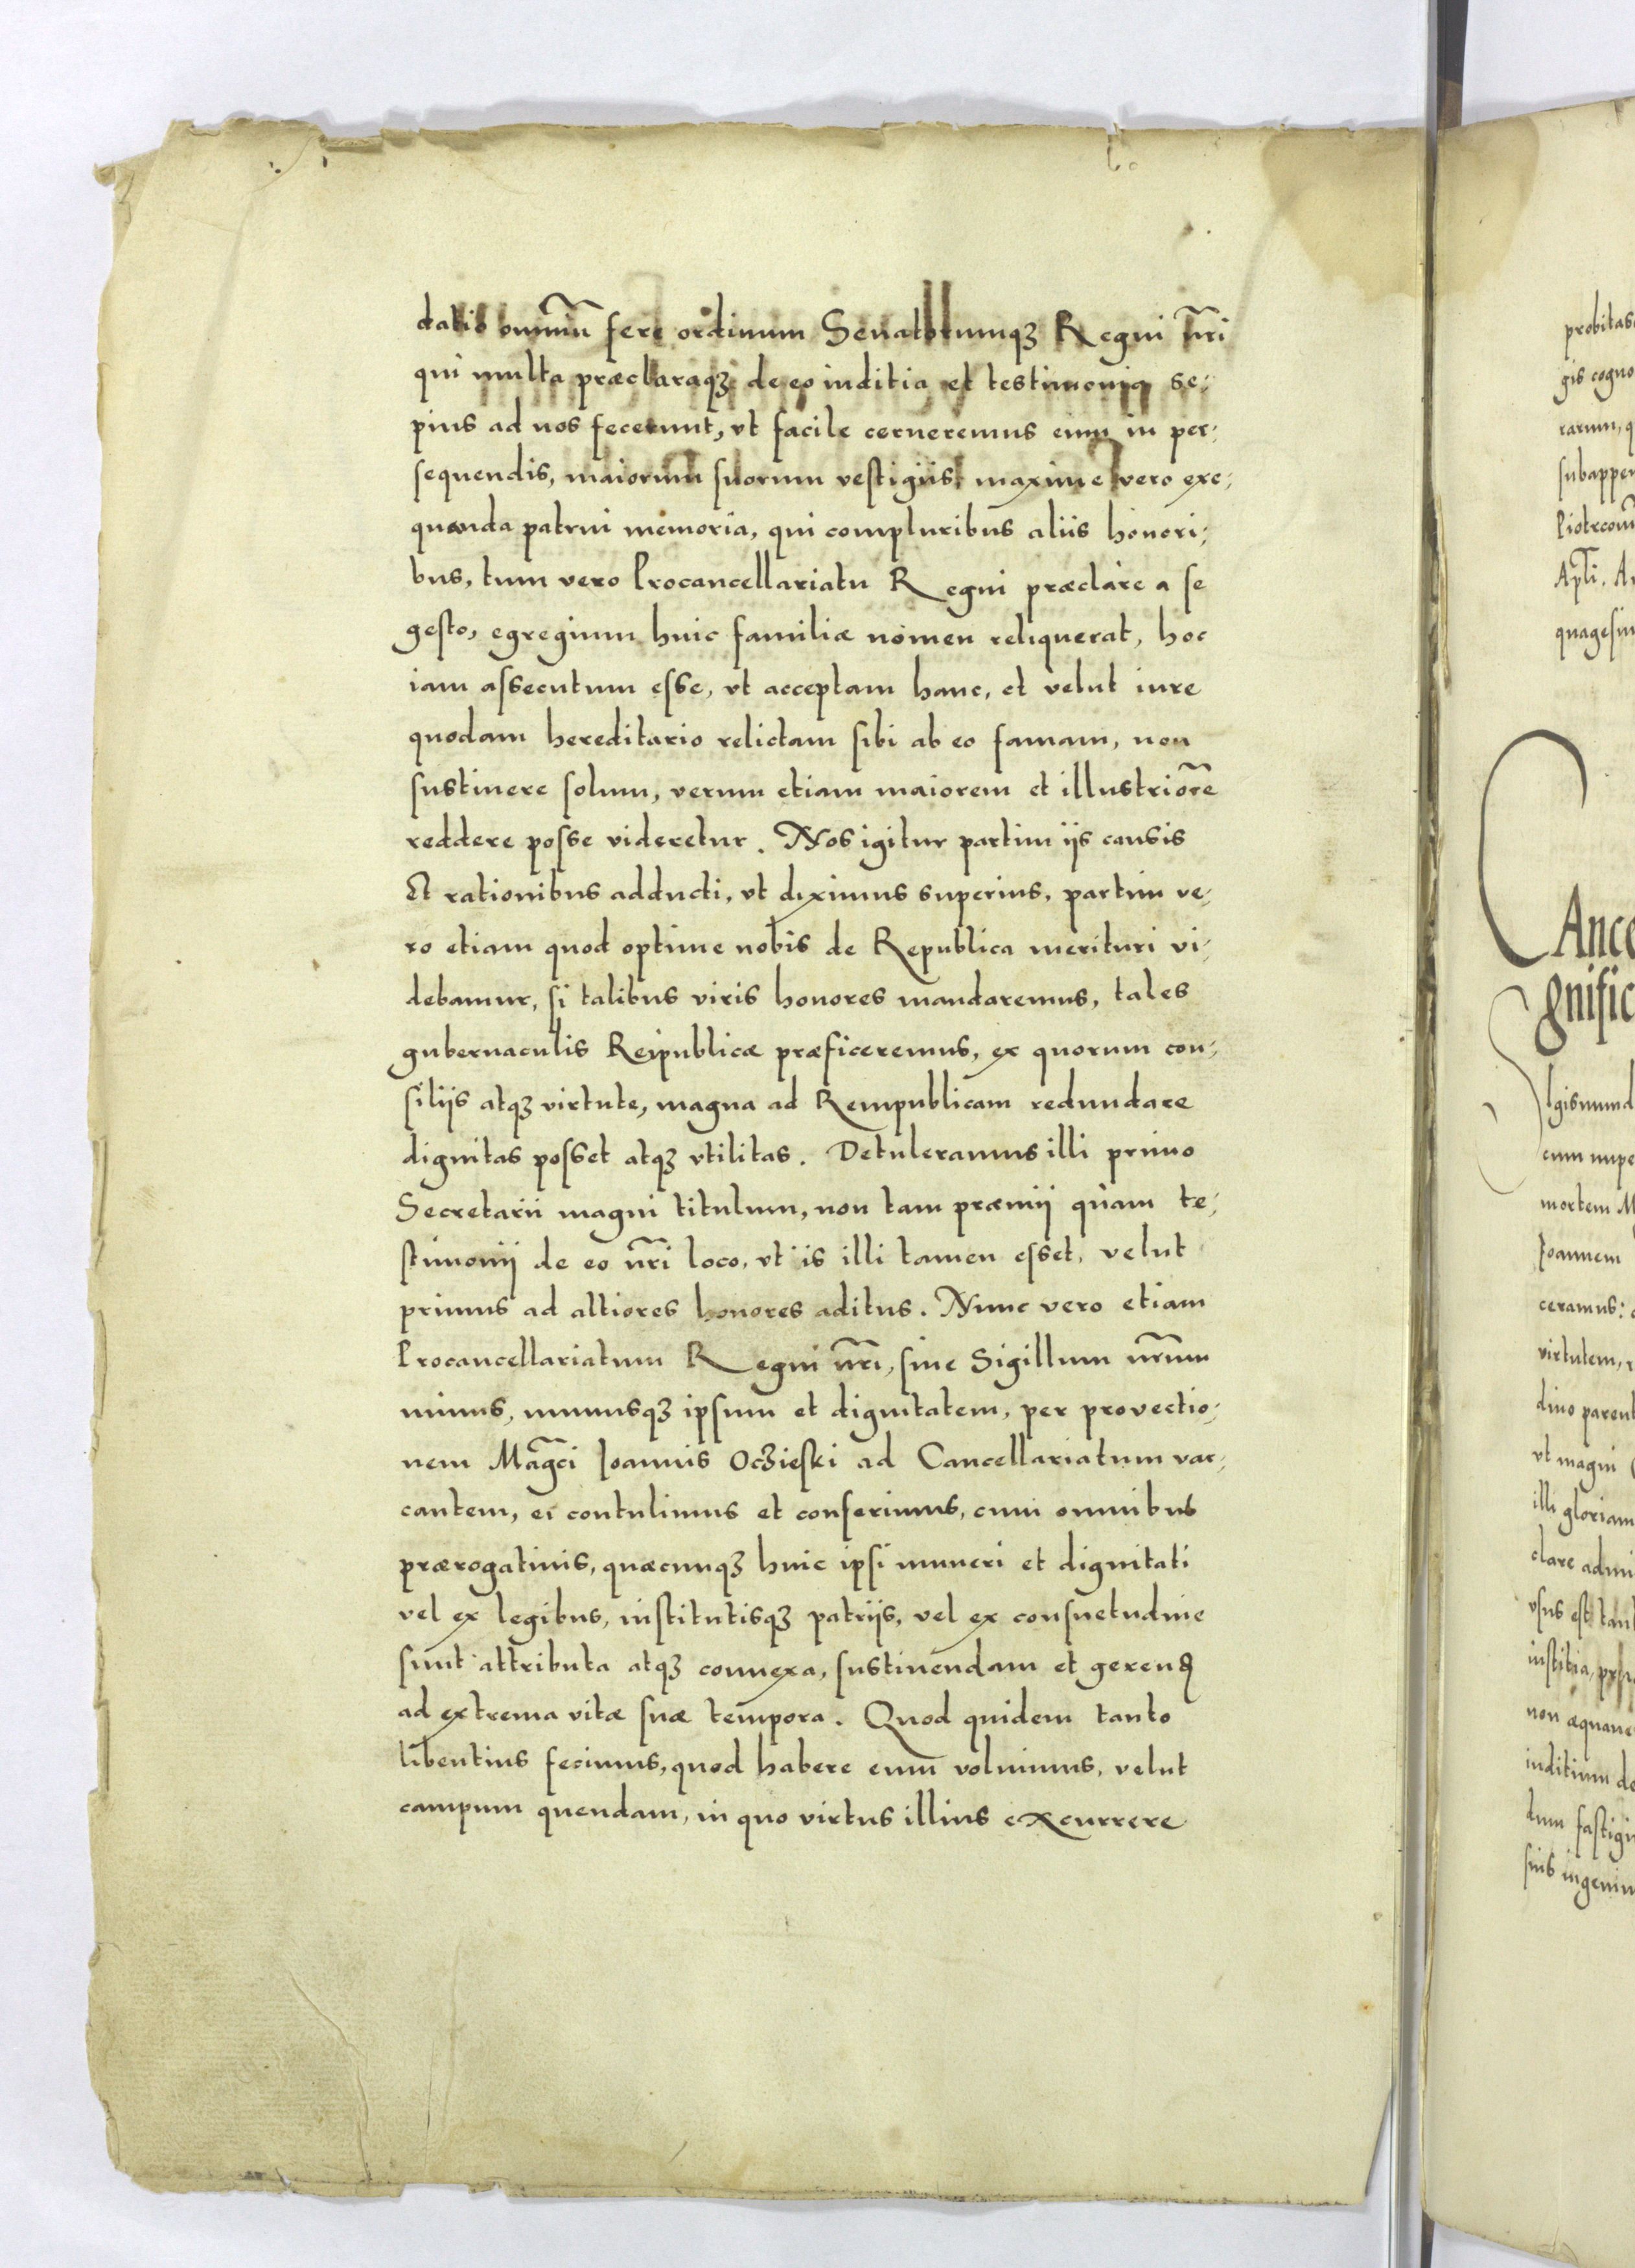 datis omniũ fere ordinum Senatorumqꝫ Regni nr̃i
qui multa præclaraqꝫ de eo inditia et testimonia se⸗
pius ad nos fecerunt, vt facile cerneremus eum in per⸗
sequendis, maiorum suorum vestigiis, maxime vero exe⸗
quenda patrui memoria, qui compluribus aliis honori⸗
bus, tum vero Procancellariatu Regni præclare a se
gesto, egregium huic familiæ nomen reliquerat, hoc
iam assecutum esse, vt acceptam hanc, et velut iure
quodam hereditario relictam sibi ab eo famam, non
sustinere solum, verum etiam maiorem et illustriorẽ
reddere posse videretur. Nos igitur partim iis causis
Et rationibus adducti, vt diximus superius, partim ve⸗
ro etiam quod optime nobis de Republica merituri vi⸗
debamur, si talibus viris honores mandaremus, tales
gubernaculis Reipublicæ præficeremus, ex quorum con⸗
siliis atqꝫ virtute, magna ad Rempublicam redundare
dignitas posset atqꝫ vtilitas. Detuleramus illi primo
Secretarii magni titulum, non tam præmij quam te⸗
stimonij de eo nr̃i loco, vt is illi tamen esset, velut
primus ad altiores honores aditus. Nunc vero etiam
Procancellariatum Regni nr̃i, siue Sigillum nr̃um
minus, munusqꝫ ipsum et dignitatem, per provectio⸗
nem Magc̃i Joannis Oczieski ad Cancellariatum va⸗
cantem, ei contulimus et conferimus, cum omnibus
prærogatiuis, quæcunqꝫ huic ipsi muneri et dignitati
vel ex legibus, institutisqꝫ patriis, vel ex consuetudine
sunt attributa atqꝫ connexa, sustinendam et gerenꝺ
ad extrema vitæ suæ tempora. Quod quidem tanto
libentius fecimus, quod habere eum voluimus, velut
campum quendam, in quo virtus illius excurrere
probitas
gis cogno
rarum, q
subappen
Ance
gnific
cum nupe
mortem M
Joannem
ceramus:
virtutem,
dino parent
vt magni
illi gloriam
clare admi
vsus est tant
iustitia,
non æquane
inditium de
fastigi
suis ingenium